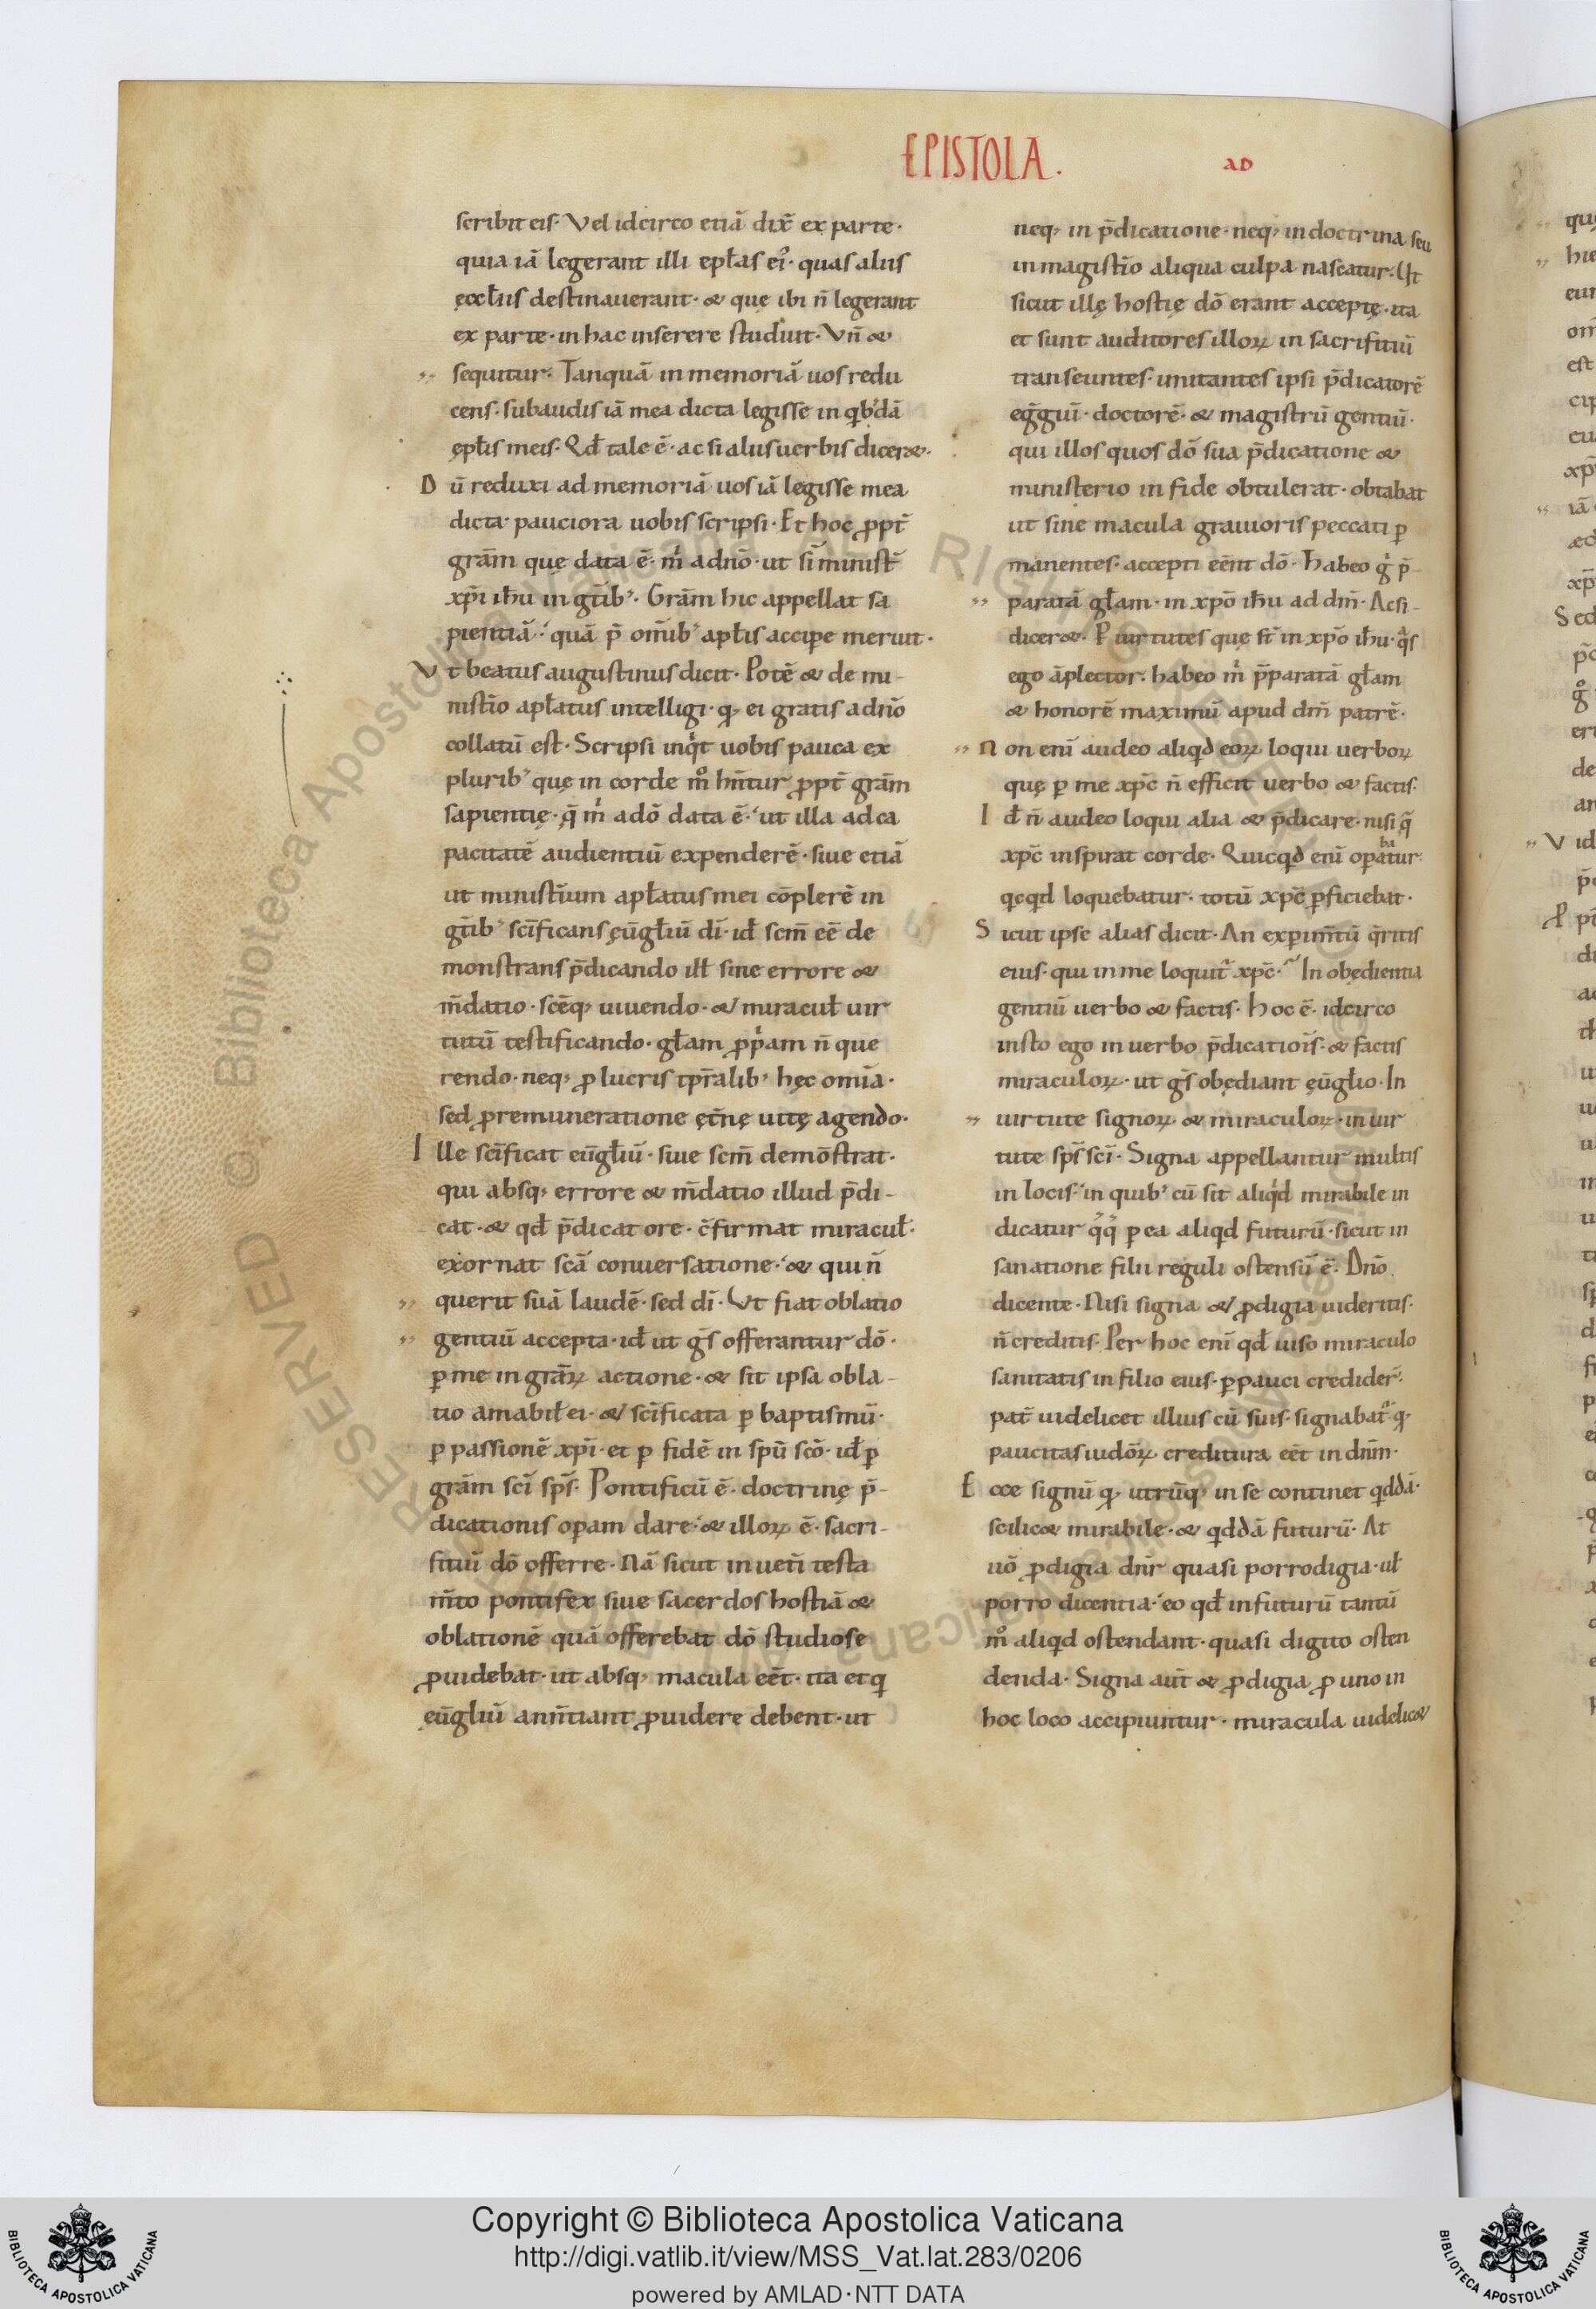 EPISTOLA. AD
scribit eis· Vel idcirco etiā dix̄ ex parte·
quia iā legerant illi epłas ei᷒· quas aliis
ęccłiis destinauerant· & quę ibi n̄ legerant
ex parte· in hac inserere studuit· Vn̄ &
sequitur· Tanquā in memoriā uos redu
cens· subaudis iā mea dicta legisse in qb᷒dā
ępłis meis· Qđ tale ē· ac si aliis uerbis dicer&·
Dū reduxi ad memoriā uos iā legisse mea
dicta· pauciora uobis scripsi· Et hoc ꝓpt̄
grām quę data ē· m̍ a dn̄o· ut sim̄ minist̄
xp̄i ih̄u in gt̄ib᷒· Grām hic appellat sa
pientiā· quā p̄ om̄ib᷒ apłis accipe meruit·
Vt beatus augustinus dicit· Potē & de mi-
nist̄io apłatus intelligi· q̨ ei gratis a dn̄o
collatū est· Scripsi inq̍t uobis pauca ex
plurib᷒ quę in corde mͦ hn̄tur ꝓpt̄ grām
sapientię· q̄ m̍ a dō data ē· ut illa ad ca
pacitatē audientiū expenderē· siue etiā
ut minist̄ium apłatus mei cōplerē in
gt̄ib᷒ sc̄ificans ęūgłiū dī· iđ scm̄ eē de
monstrans p̄dicando ilł sine errore &
m̄datio· scēq᷒ uiuendo· & miracuł uir
tutū testificando· głam ꝓp̍am n̄ que
rendo· neq᷒ ꝓ lucris tp̄ralib᷒ hęc omīa·
sed ꝓ remuneratione ęt̄nę uitę agendo·
Ille sc̄ificat eūgłiū· siue scm̄ demōstrat·
qui absq᷒ errore & m̄datio illud p̄di-
cat· & qđ p̄dicat ore· c̄firmat miracuł·
exornat scā conuersatione· & qui n̄
querit suā laudē· sed dī· Vt fiat oblatio
gentiū accepta· iđ ut gs̄ offerantur dō·
ꝑ me in grāꝝ actione· & sit ipsa obla-
tio amabił ei· & sc̄ificata ꝑ baptismū·
ꝑ passionē xp̄i· et ꝑ fidē in sp̄u scō· iđ ꝑ
grām scī sp̄s· Pontificū ē· doctrinę p̄-
dicationis opam dare· & illoꝝ ē· sacri-
fitiū dō offerre· Nā sicut in uetī testa
m̄to pontifex siue sacerdos hostiā &
oblationē quā offerebat dō studiose
ꝓuidebat· ut absq᷒ macula eēt· ita et q̨
eūgłiū ann̄tiant ꝓuidere debent· ut
neq᷒ in p̄dicatione· neq᷒ in doctrina seu
in magist̄io aliqua culpa nascatur· Et
sicut illę hostię dō erant acceptę· ita
et sunt auditores illoꝝ in sacrifitiū
transeuntes· imitantes ipsi p̄dicatorē
eḡgiū· doctorē· & magistrū gentiū·
qui illos quos dō sua p̄dicatione &
ministerio in fide obtulerat· obtabat
ut sine macula grauioris peccati ꝑ
manentes· accepti eēnt dō· Habeo g̍ p̄-
paratā głam· in xp̄o ih̄u ad dm̄· Ac si-
dicer&· P uirtutes quę st̄ in xp̄o ih̄u· q̄s
ego āplector· habeo m̍ p̄paratā głam
& honorē maximū apud dm̄ patrē·
Non enī audeo aliqd eoꝝ loqui uerboꝝ
quę ꝑ me xp̄c n̄ efficit uerbo & factis·
Iđ n̄ audeo loqui alia & p̄dicare· nisi q̄
xp̄c inspirat corde· Quicqd enī opabatur·
qcqd loquebatur· totū xp̄c ꝑficiebat·
Sicut ipse alias dicit· An experim̄tū q̄ritis
eius· qui in me loquit̄ xp̄c· In obędientia
gentiū uerbo & factis· Hoc ē· idcirco
insto ego in uerbo p̄dicatiois̄· & factis
miraculoꝝ· ut gs̄ obędiant ęūgłio· In
uirtute signoꝝ· & miraculoꝝ· in uir
tute sp̄s scī· Signa appellantur multis
in locis· in quib᷒ cū sit aliq̍d mirabile in
dicatur q̊q̊ ꝑ ea aliqd futurū· sicut in
sanatione filii reguli ostensū ē· Dn̄o
dicente· Nisi signa & ꝓdigia uideritis·
n̄ creditis· Per hoc enī qđ uiso miraculo
sanitatis in filio eius· ꝑpauci credider̄·
pat̄ uidelicet illius cū suis· signabat̄· q̨
paucitas iudōꝝ creditura eēt in dn̄m·
Ecce signū q̨ utrūq᷒ in se continet qddā·
scilic& mirabile· & qddā futurū· At
uō ꝓdigia dn̄r quasi porrodigia· uł
porro dicentia· eo qđ in futurū tantū
mͦ aliqd ostendant· quasi digito osten
denda· Signa aūt & ꝓdigia ꝓ uno in
hoc loco accipiuntur· miracula uidelic&
Copyright © Biblioteca Apostolica Vaticana
http://digi.vatlib.it/view/MSS_Vat.lat.283/0206
powered by AMLAD·NTT DATA